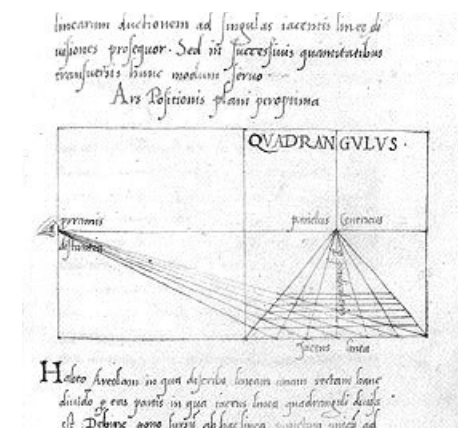 linearum ductionem ad singulas iacentis lineę di
uisiones prosequor. Sed in successiuis quantitatibus
transuersis hunc modum seruo.
Ars Positionis plani peroptima
QVADRANGVLVS.
punctus Centricus
distantia
Jacens linea
Habeo Areolam in qua describo lineam unam rectam hanc
diuido p eas partis in qua iacens linea quadranguli diuisa
est. Dehinc pono sursum ab hac linea punctum unicũ ad